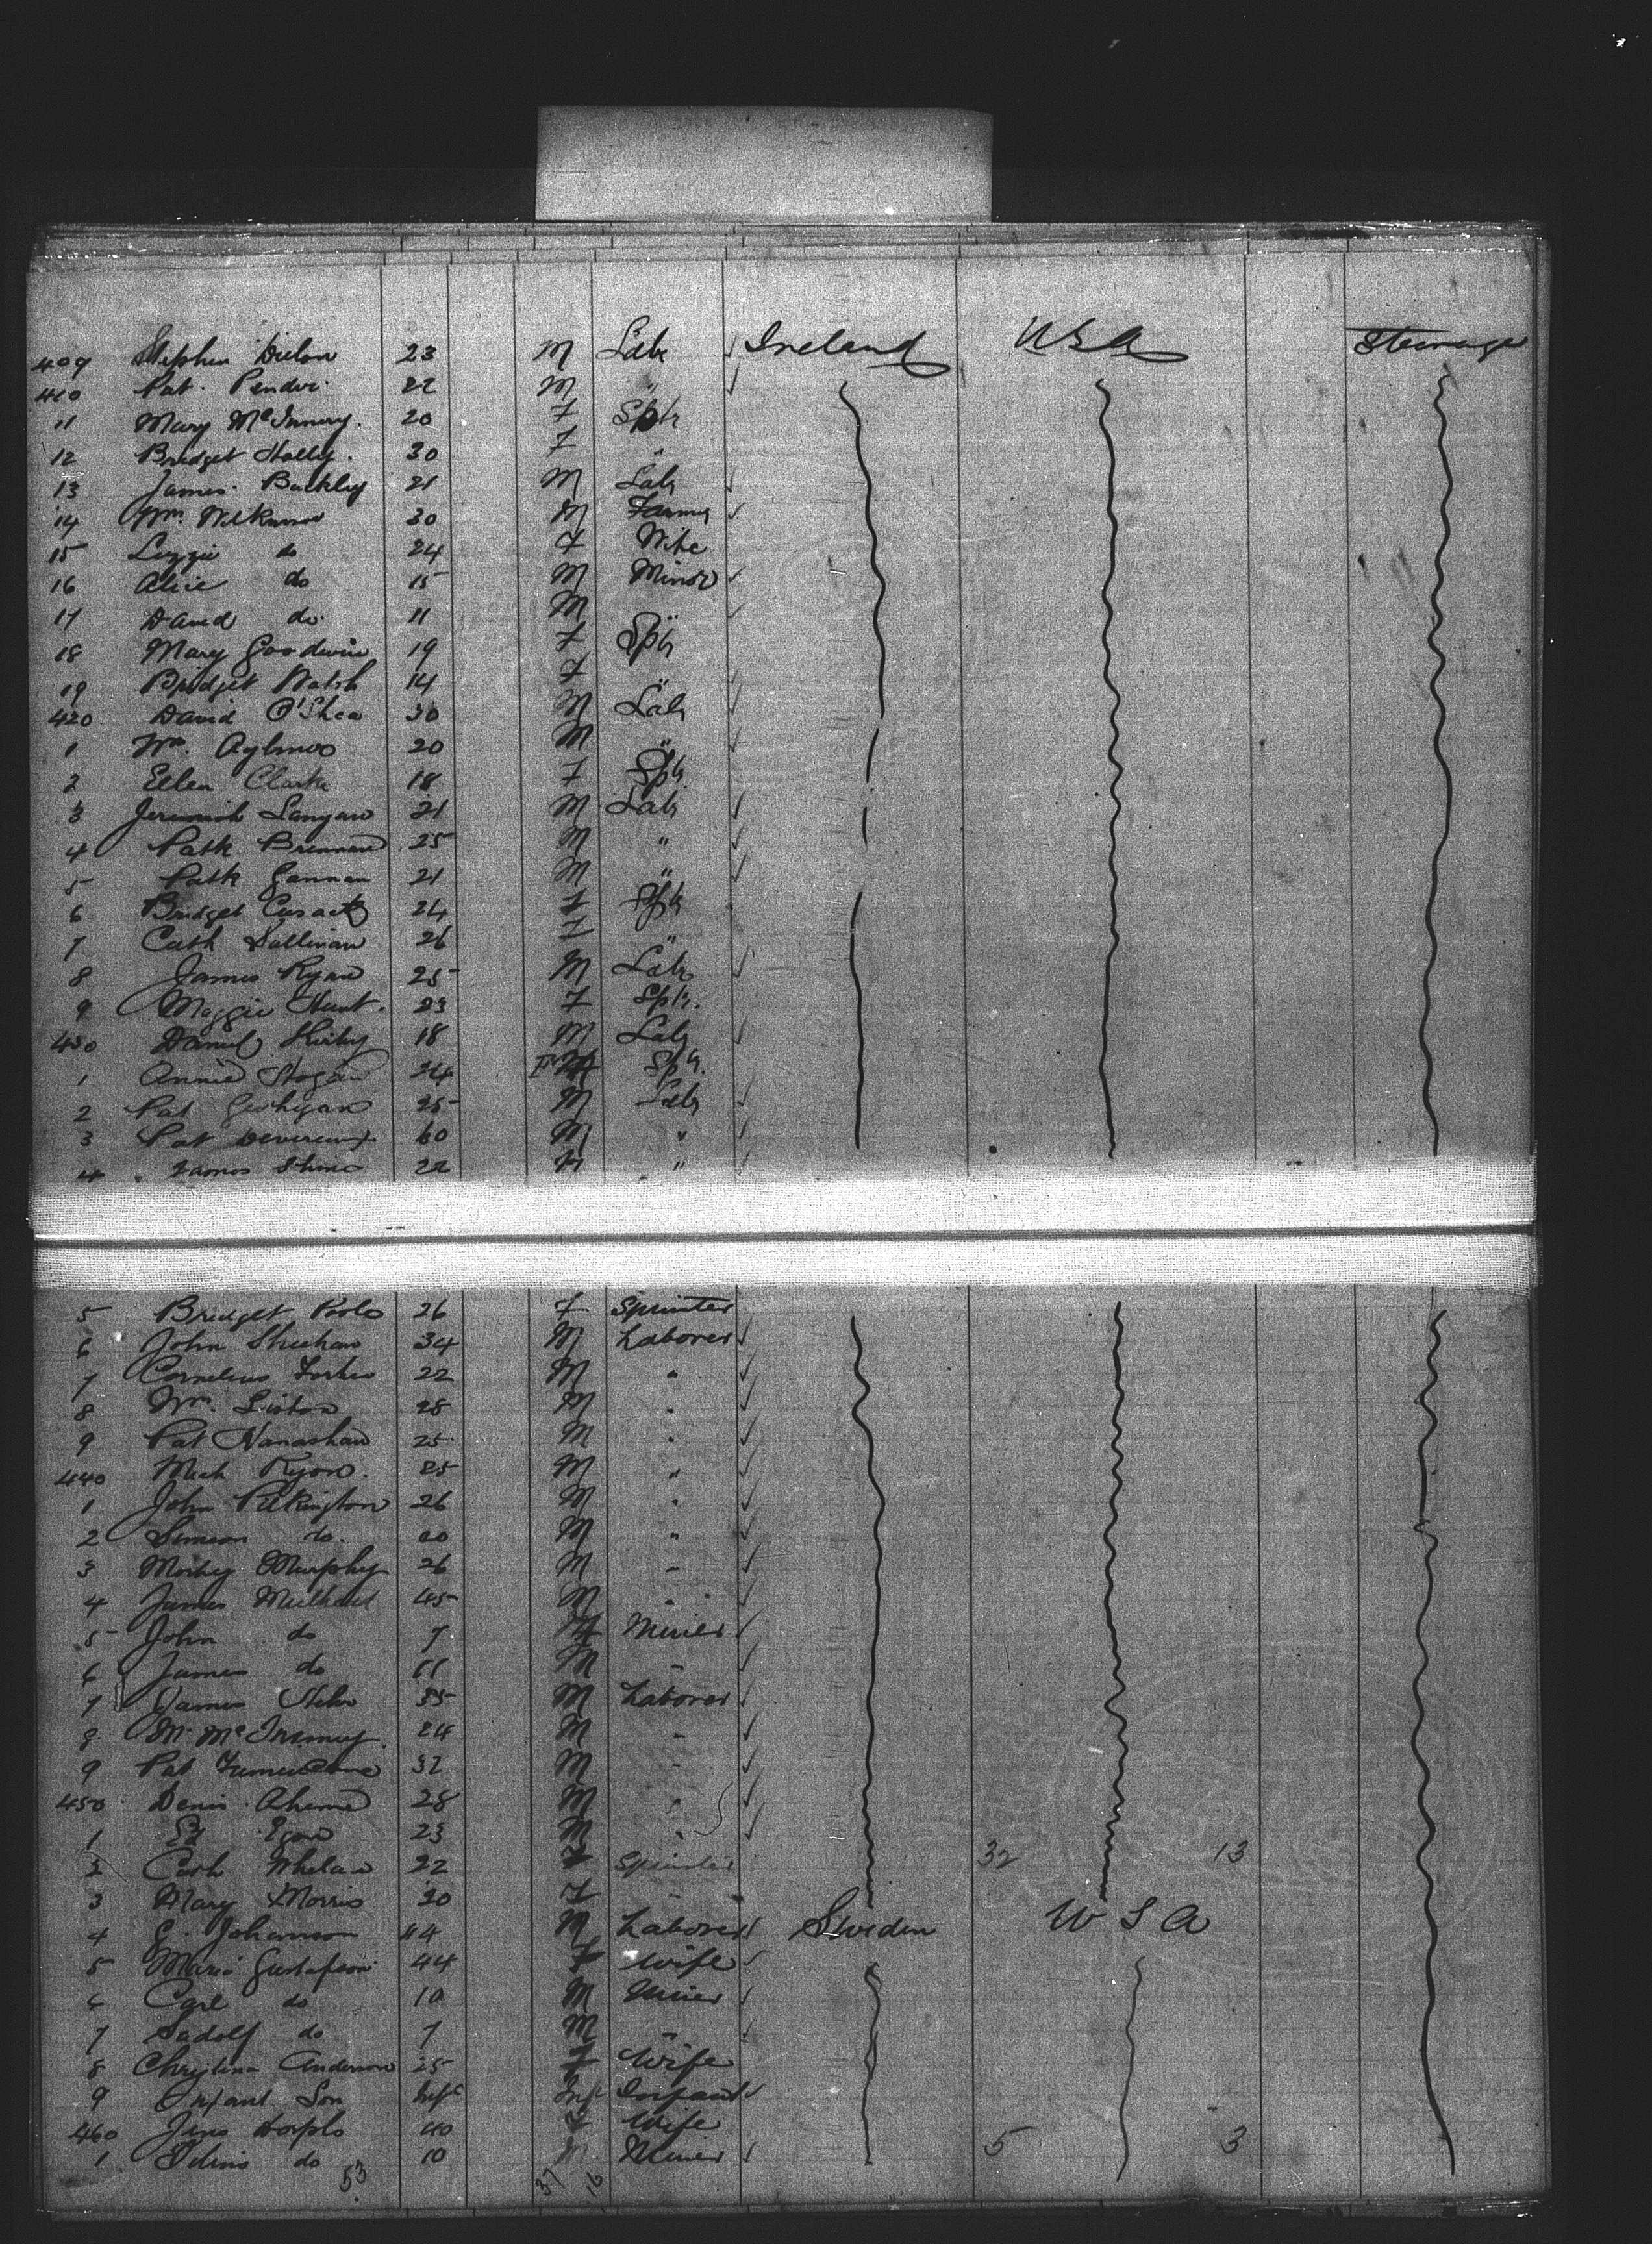 409 Stephen Dillon 23 M Labr Ireland USA Steerage
410 Pat. Pender 22 M "
11 Mary McInnery. 20 F Sptr
12 Bridget Holly. 30 F "
13 James Buckley 21 M Labr
14 Wm. Wilkinson 30 M Farmer
15 Lizzie do 24 F Wife
16 Alice do 15 M Minor
17 David do. 11 M "
18 Mary Goodwin 19 F Sptr
19 Bridget Walsh 14 F "
420 David O'Shea 30 M Labr
1 Wm. Aylmer 20 M "
2 Ellen Clarke 18 F Sptr
3 Jeremiah 21 M Labr
4 Patk Brennan 25 M "
5 Patk Gannan 21 M "
6 Bridget Cusack 24 F Sptr
7 Cath Sullivan 26 F "
8 James Ryan 25 M Labr
9 Maggie Hunt. 23 F Sptr.
430 Daniel Kirby 18 M Labr
1 Annie Hogan 24 F Sptr.
2 Pat 25 M Labr
3 Pat Devereux 60 M "
4 James 22 M "
5 Bridget Poole 26 F Spinster
6 John Sheehan 34 M Laborer
7 Cornelius 22 M "
8 Wm. Liston 28 M "
9 Pat 25 M "
440 Mich Ryan. 25 M "
1 John Pilkington 26 M "
2 Simeon do. 20 M "
3 Murphy 26 M "
4 James 45 M "
5 John do 7 M Minor
6 James do 11 M "
7 James 35 M Laborer
8 M. McInerney. 24 M "
9 Pat 32 M "
450 Denis Aherne 28 M "
1 Ed Egan 23 M "
2 Cath Whelan 22 F Spinster 32 13
3 Mary Morris 20 F "
4 G. Johanson 44 M Laborer Sweden U S A
5 Maria Gustafson 44 F Wife
6 Carl do 10 M Minor
7 do 7 M "
8 Christina Anderson 25 F Wife
9 Infant Son Inft Inft Infant
460 Jens 40 F Wife
1 do 10 M Minor 5 3
53 37 16